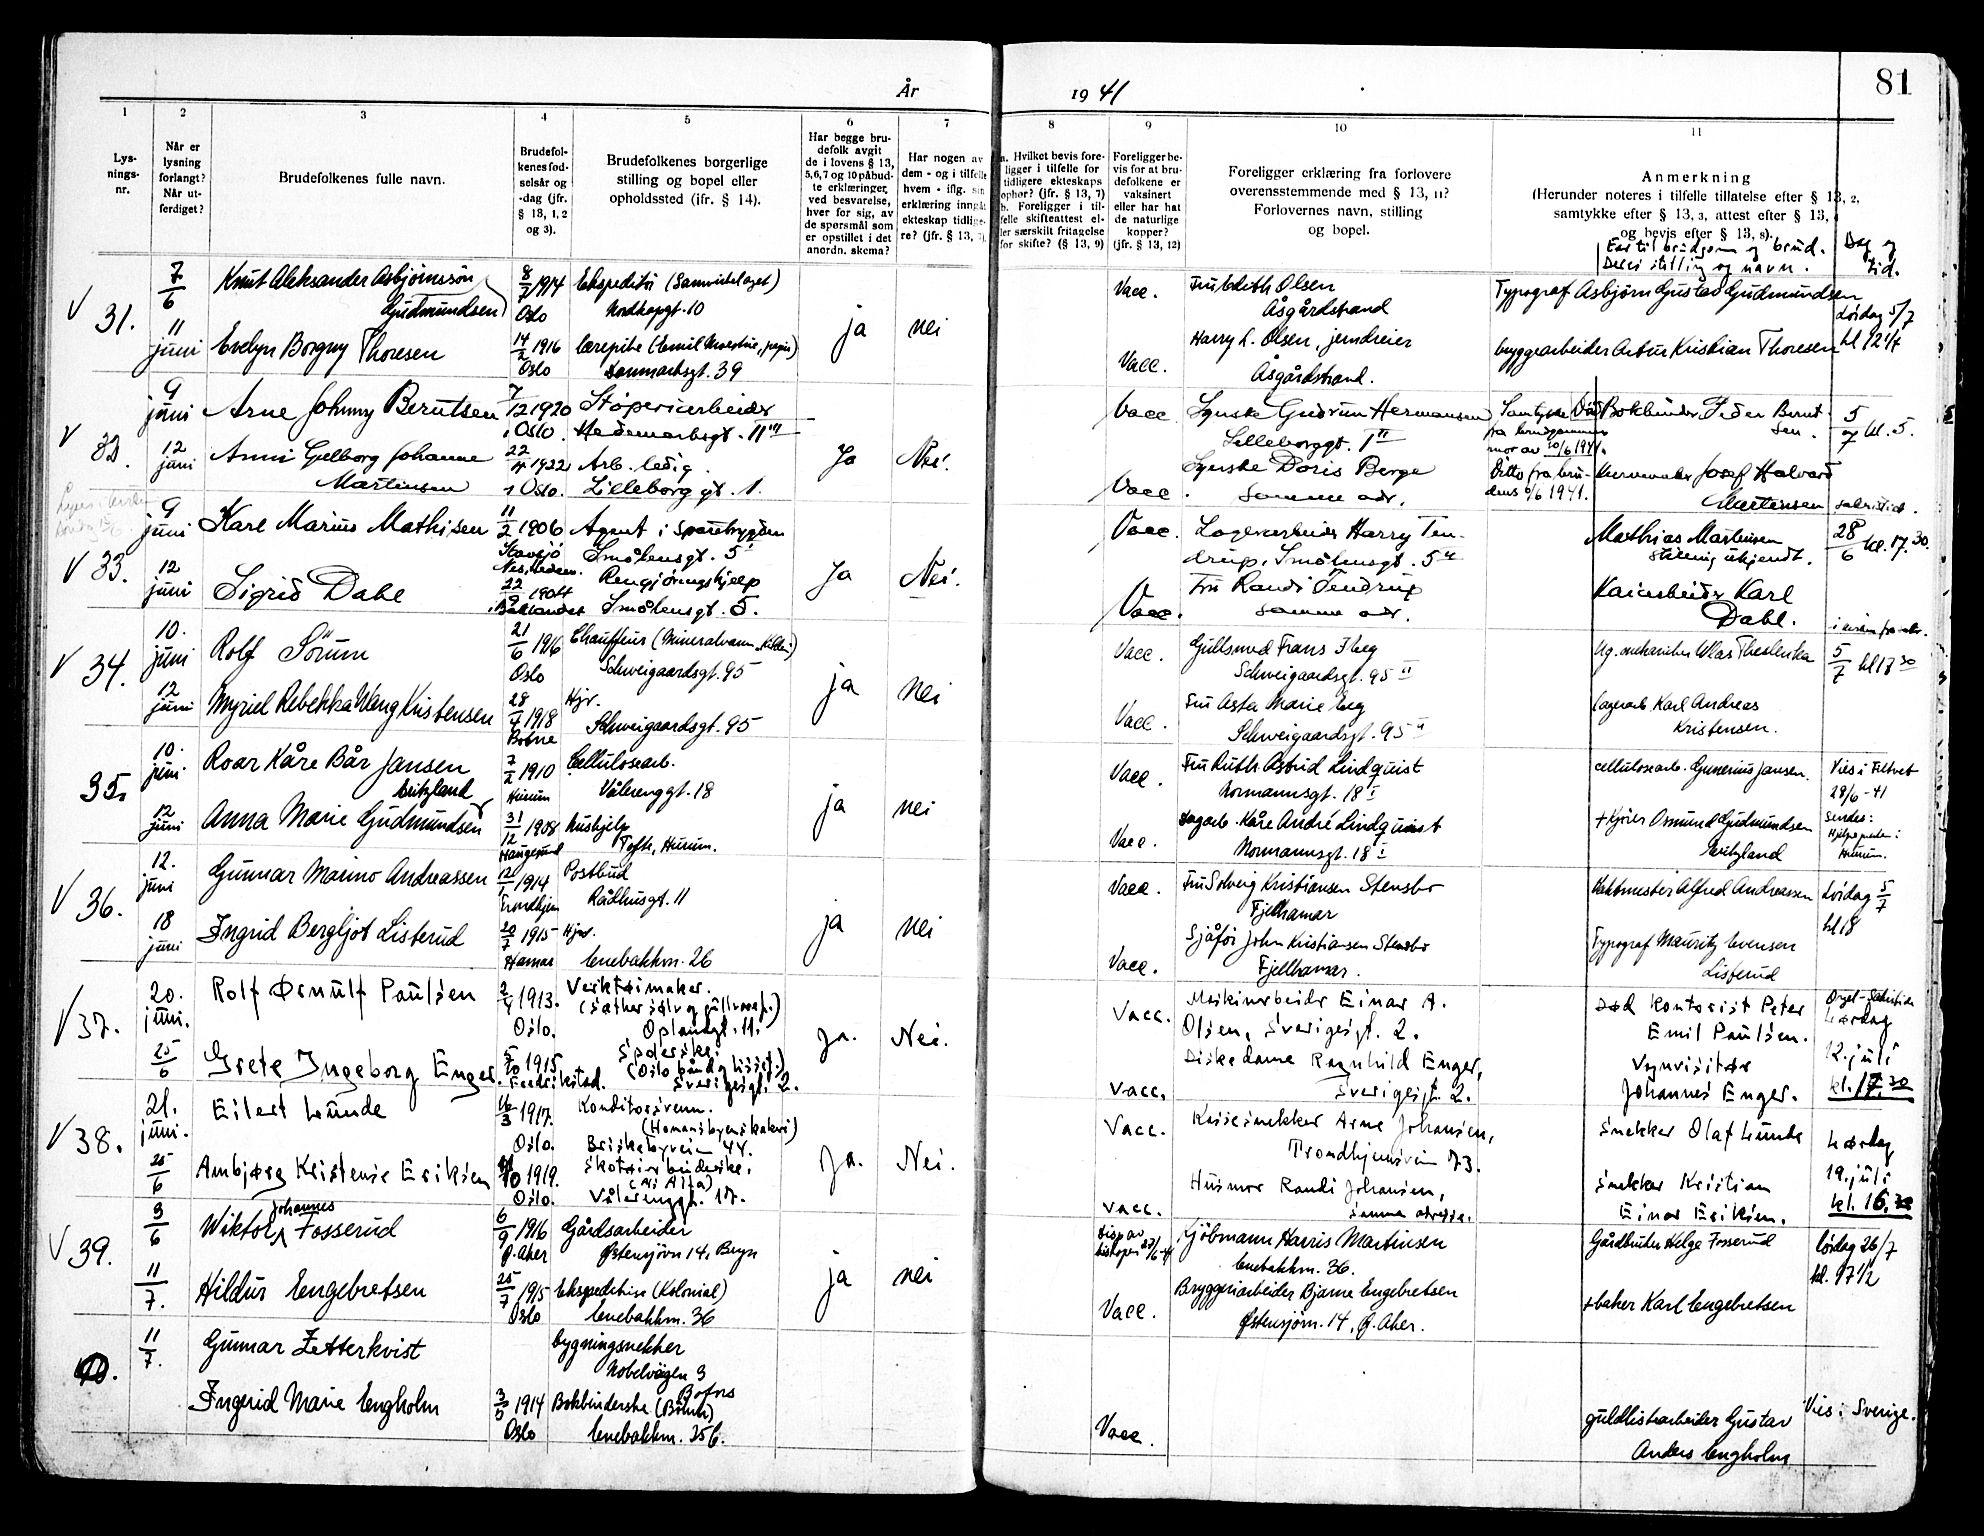 81
År 1941
1 2 3 4 5 6 7 8 9 10 11
Lys-
nings-
nr.
Når er
lysning
forlangt?
Når ut-
ferdiget?
Brudefolkenes fulle navn.
Brudefol-
kenes fød-
selsår og
-dag (jfr.
§ 13, 1, 2
og 3).
Brudefolkenes borgerlige
stilling og bopel eller
opholdssted (ifr. § 14).
Har begge bru-
defolk avgit
de i lovens § 13,
5,6,7 og 10 påbud-
te erklæringer,
ved besvarelse,
hver for sig, av
de spørsmål som
er opstillet i det
anordn. skema?
Har nogen av
dem - og i tilfelle
hvem - iflg. sin
erklæring inngåt
ekteskap tidlige-
re? (jfr. § 13, 7).
a. Hvilket bevis fore-
ligger i tilfelle for
tidligere ekteskaps
ophør? (jfr. § 13, 7)
b. Foreligger i til-
felle skifteattest el-
ler særskilt fritagelse
for skifte? (§ 13, 9)
Foreligger be-
vis for at bru-
defolkene er
vaksinert
eller har hat
de naturlige
kopper?
(jfr. § 13, 12)
Foreligger erklæring fra forlovere
overensstemmende med § 13, 11?
Forlovernes navn, stilling
og bopel.
Anmerkning
(Herunder noteres i tilfelle tillatelse efter § 13, 2,
samtykke efter § 13, 3, attest efter § 13, 4
og bevis efter § 13, 8).
Far til brudgom og brud.
Deres stilling og navn.
Dag og
tid.
V 31.
7/6
Knut Aleksander Asbjørnssøn
Gudmundsen
8/7 1914
Oslo
Ekspeditør (Samvirkelaget)
Nordkapgt. 10
ja nei
Vacc.
Fru Edith Olsen
Åsgårdstrand
Typograf Asbjørn Gustav Gudmundsen
Lördag 5/7
kl 12 1/4
11
juni
Evelyn Borgny Thoresen
14/2 1916
Oslo
Danmarksgt. 39
Vacc.
Harry L. Olsen, jerndreier
Åsgårdstrand.
bryggearbeider Artur Kristian Thoresen
V 32.
9
juni
Arne Johnny Berntsen
7/12 1920
Oslo.
Støperiarbeider
Hedemarksgt. 11
Ja Nei.
Vacc.
Synske Gudrun Hermansen
Lilleborggt. 1 II
Samtykke
fra brudgommens
mor av 10/6 1941.
Bokbinder Peder Bernt-
sen.
5/7 kl. 5.
12
juni
Anni Gelborg Johanne
Martinsen
22/4 1922
Oslo.
Arb. ledig.
Lilleborg gt. 1.
Vacc.
Synske Doris Berge
samme adr.
Ditto fra bru-
dens 9/6 1941.
Josef Halvard
Martinsen
V 33.
9
juni
Karl Marius Mathisen
11/2 1906
Agent i Sparebrygden
Smålensgt. 5
Ja Nei.
Vacc.
Lagerarbeider Harry Ten-
drup, Smålensgt. 5
Mathias Martinsen
stilling ukjendt.
28/6 kl. 17.30.
12
juni
Sigrid Dahl
22/9 1904
Rengjøringshjelp
Smålensgt. 5.
Vacc.
Fru Randi Tendrup
samme adr.
Kaiarbeider Karl
Dahl.
V 34.
10.
juni
Rolf Sörum
21/6 1916
Oslo
Chauffeur (Mineralvann
Schweigaardsgt. 95
ja nei
Vacc.
Gullsmed Frans Iberg
Schweigaardsgt. 95 II
5/7 kl 17 30
12
juni
Myriel Rebekka Wang Kristensen
28/7 1918
Hjv.
Schweigaardsgt. 95
Vacc.
Fru Asta Marie Iberg
Schweigaardsgt. 95 II
lagerarb. Karl Andreas
Kristensen.
35.
10.
juni.
Roar Kåre Bår Jansen
7/2 1910
Hurum
Cellulosearb.
Vålerenggt. 18
ja nei
Vacc.
Fru Ruth Astrid Lindquist
Normannsgt. 18 I
cellulosearb. Gunerius Jansen.
Vies i Filtvet
28/6 - 41
Sendes:
Hurum.
12
juni
Anna Marie Gudmundsen
Eritzland
31/12 1908
Haugesund
Hushjelp
Tofte, Hurum.
Vacc.
Kåre André Lindquist
Normannsgt. 18 I
+ Kjører Osmund Gudmundsen
Eritzland
V 36.
12.
juni
Gunnar Marino Andreassen
12/1 1914
Trondhjem
Postbud
Rådhusgt. 11
ja nei
Vacc.
Fru Solveig Kristiansen Stensbo
Fjellhamar
Vaktmester Alfred Andreassen
Lördag 5/7
kl 18
18
juni
Ingrid Bergljot Listerud
20/7 1915
Hamar
Hjv.
Enebakkvn. 26
Vacc.
Sjåfør John Kristiansen Stensbo
Fjellhamar.
Typograf Mauritz Evensen
Listerud
V 37.
20.
juni.
Rolf Ørnulf Paulsen
2/4 1913.
Oslo.
Verktøimaker.
(Sæther sølv og gullvaref.)
Oplandgt. 11.
Ja. Nei.
Vacc.
Maskinarbeider Einar A.
Olsen, Sverigesgt. 2.
død Kontorist Peter
Emil Paulsen.
Lørdag
12. juli
kl. 17.30
25/6
Grete Ingeborg Enger.
5/10 1915
Fredrikstad.
Spolerske.
(Oslo bånd og lissef.)
Sverigesgt. 2.
Vacc.
Diskedame Ragnhild Enger,
Sverigesgt. 2.
Vognvisitør
Johannes Enger.
V 38.
21.
juni.
Eilert Lunde
16/3 1917.
Oslo.
Konditorsvenn.
(Homansbyens bakeri)
Briskebyvein 44.
Ja. Nei.
Vacc.
Kassesnekker Arne Johansen,
Trondhjemsvein 73.
Snekker Olaf Lunde
Lørdag
19. juli
kl. 16.30
25/6
Ambjørg Kristense Eriksen
10 1919.
Oslo.
Skotøiarbeiderske.
Vålerenggt. 17.
Vacc.
Husmor Randi Johansen,
samme adresse.
Snekker Kristian
Einar Eriksen.
V 39.
3/6
Wiktor Johannes Fosserud
6/9 1916
Ø. Aker
Gårdsarbeider
Østensjövn 14, Bryn
ja nei
Disp av
biskopen 27/6-41
Kjöbmann Harris Martinsen
Enebakkvn. 36.
Gårdbruker Helge Fosserud
Lördag 26/7
kl. 17 1/2
11/7.
Hildur Engebretsen
25/7 1915
Oslo
Ekspeditrise (Kolonial)
Enebakkvn. 36
Vacc.
Bryggeriarbeider Bjarne Engebretsen
Østensjövn. 14, Ø. Aker.
+ baker Karl Engebretsen
40.
11/7.
Gunnar Zetterkvist
bygningssnekker
Nobelvägen 3
Bofors
Ingerid Marie Engholm
3/5 1914
Oslo
Bokbinderske
Enebakkvn. 25 b.
Vacc.
guldlistearbeider Gustav
Anders Engholm
Vies i Sverige.